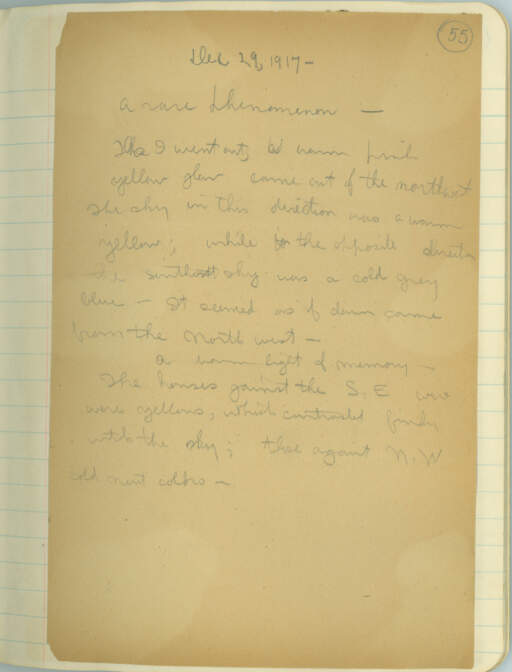 55
Dec 29, 1917 –
a rare phenomenon —
I went out, a warm pink
yellow glow came out of the northwest
The sky in this direction was a warm
yellow; while in the opposite direction
the southeast sky was a cold grey
blue – It seemed as if dawn came
from the North west –
a warm light of memory –
The houses against the S. E
were yellows, which contrasted finely
with the sky; those against N. W
cold neut colors –